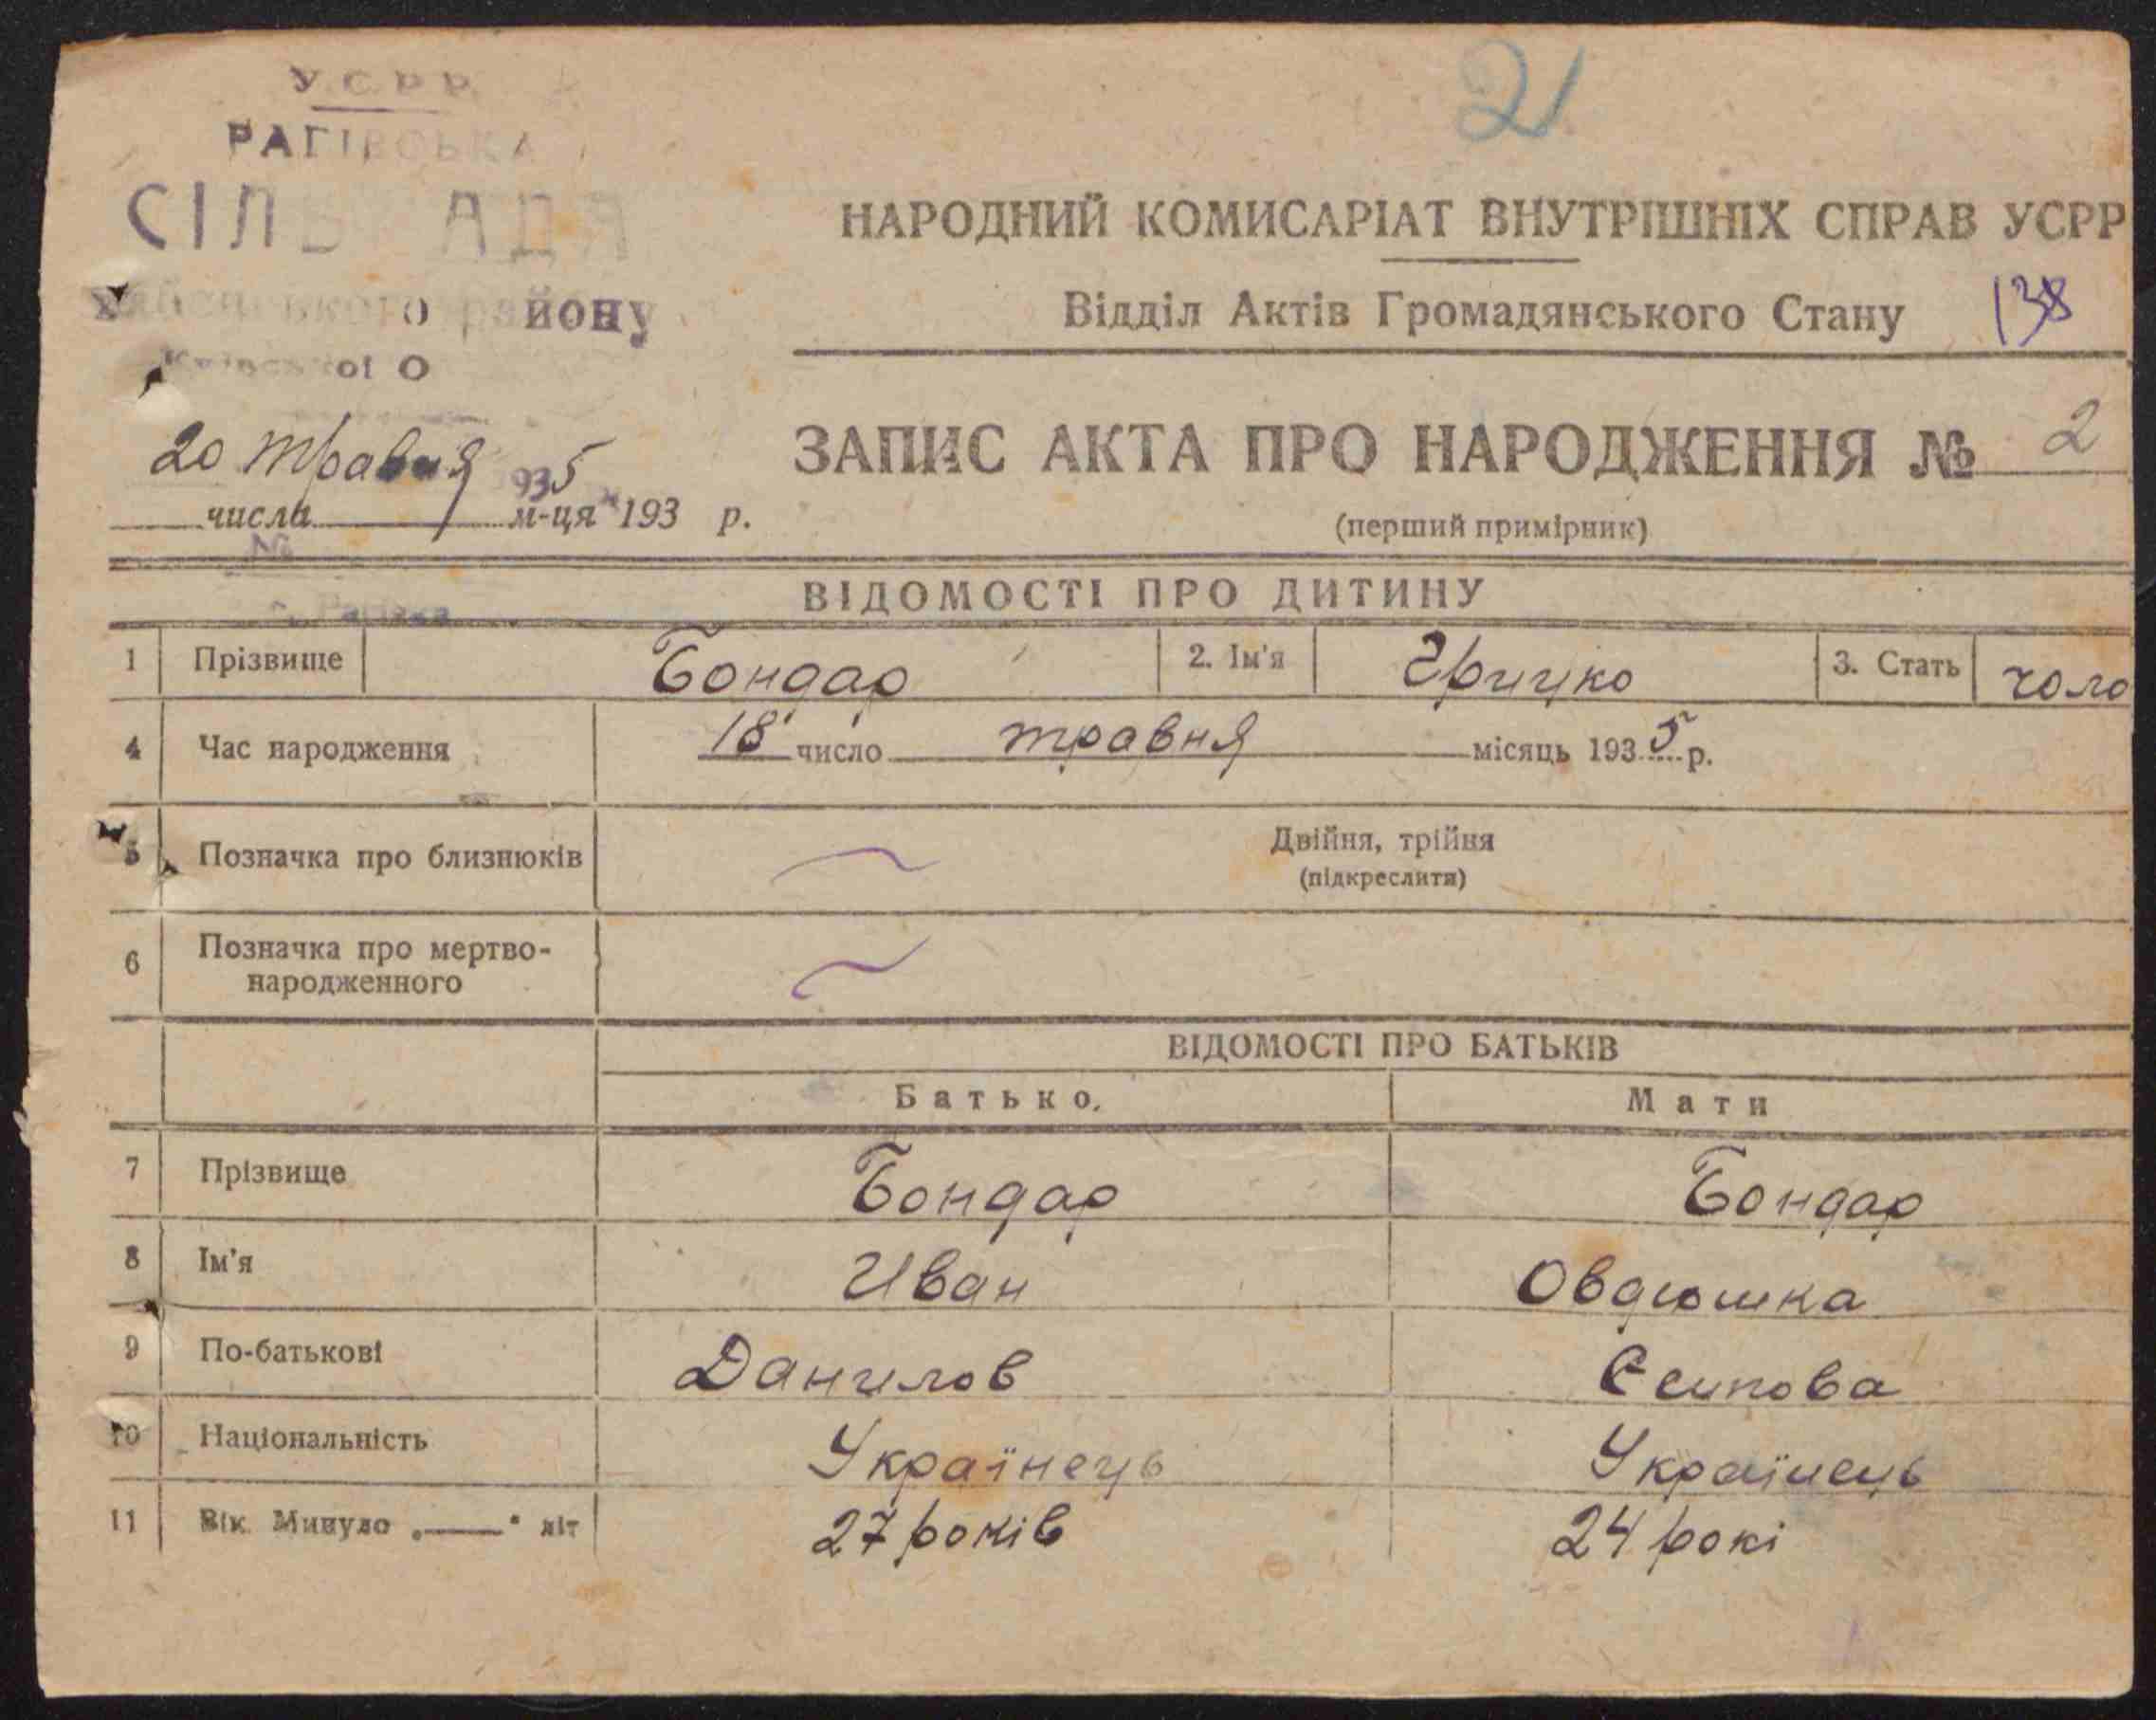 У.С.Р.Р.
РАГІВСЬКА
СІЛЬРАДА
району
20 травня 935
числа м-ця 193 р.
№
21
НАРОДНИЙ КОМИСАРІАТ ВНУТРІШНІХ СПРАВ УСРР
Відділ Актів Громадянського Стану 138
ЗАПИС АКТА ПРО НАРОДЖЕННЯ № 2
(перший примірник)
ВІДОМОСТІ ПРО ДИТИНУ
1 Прізвище Бондар 2. Ім'я Грицко 3. Стать чоло
4 Час народження 18 число травня місяць 1935 р.
5 Позначка про близнюків ~ Двійня, трійня
(підкреслити)
6 Позначка про мертво-
народженного ~
ВІДОМОСТІ ПРО БАТЬКІВ
Батько. Мати
7 Прізвище Бондар Бондар
8 Ім'я Иван Овдюшка
9 По-батькові Данилов Єсипова
10 Національність Українець Українець
11 Вік. Минуло „—" літ 27 років 24 рокі